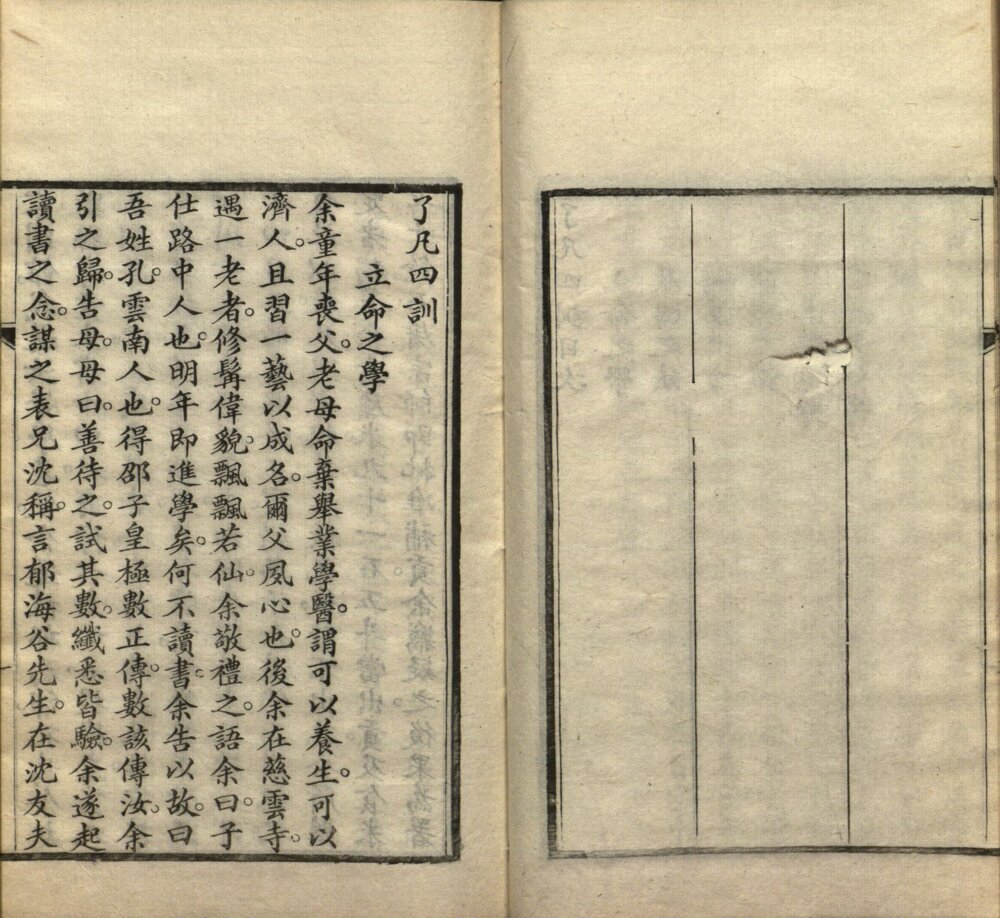 了凡四訓
立命之學
余童年喪父。老母命棄舉業學醫。謂可以養生。可以
濟人。且習一藝以成名。爾父夙心也。後余在慈雲寺。
遇一老者。修髯偉貌。飄飄若仙。余敬禮之。語余曰。子
仕路中人也。明年即進學矣。何不讀書。余告以故。曰
吾姓孔。雲南人也。得邵子皇極數正傳。數該傳汝。余
引之歸。告母。母曰。善待之。試其數。纖悉皆驗。余遂起
讀書之念。謀之表兄沈稱。言郁海谷先生。在沈友夫